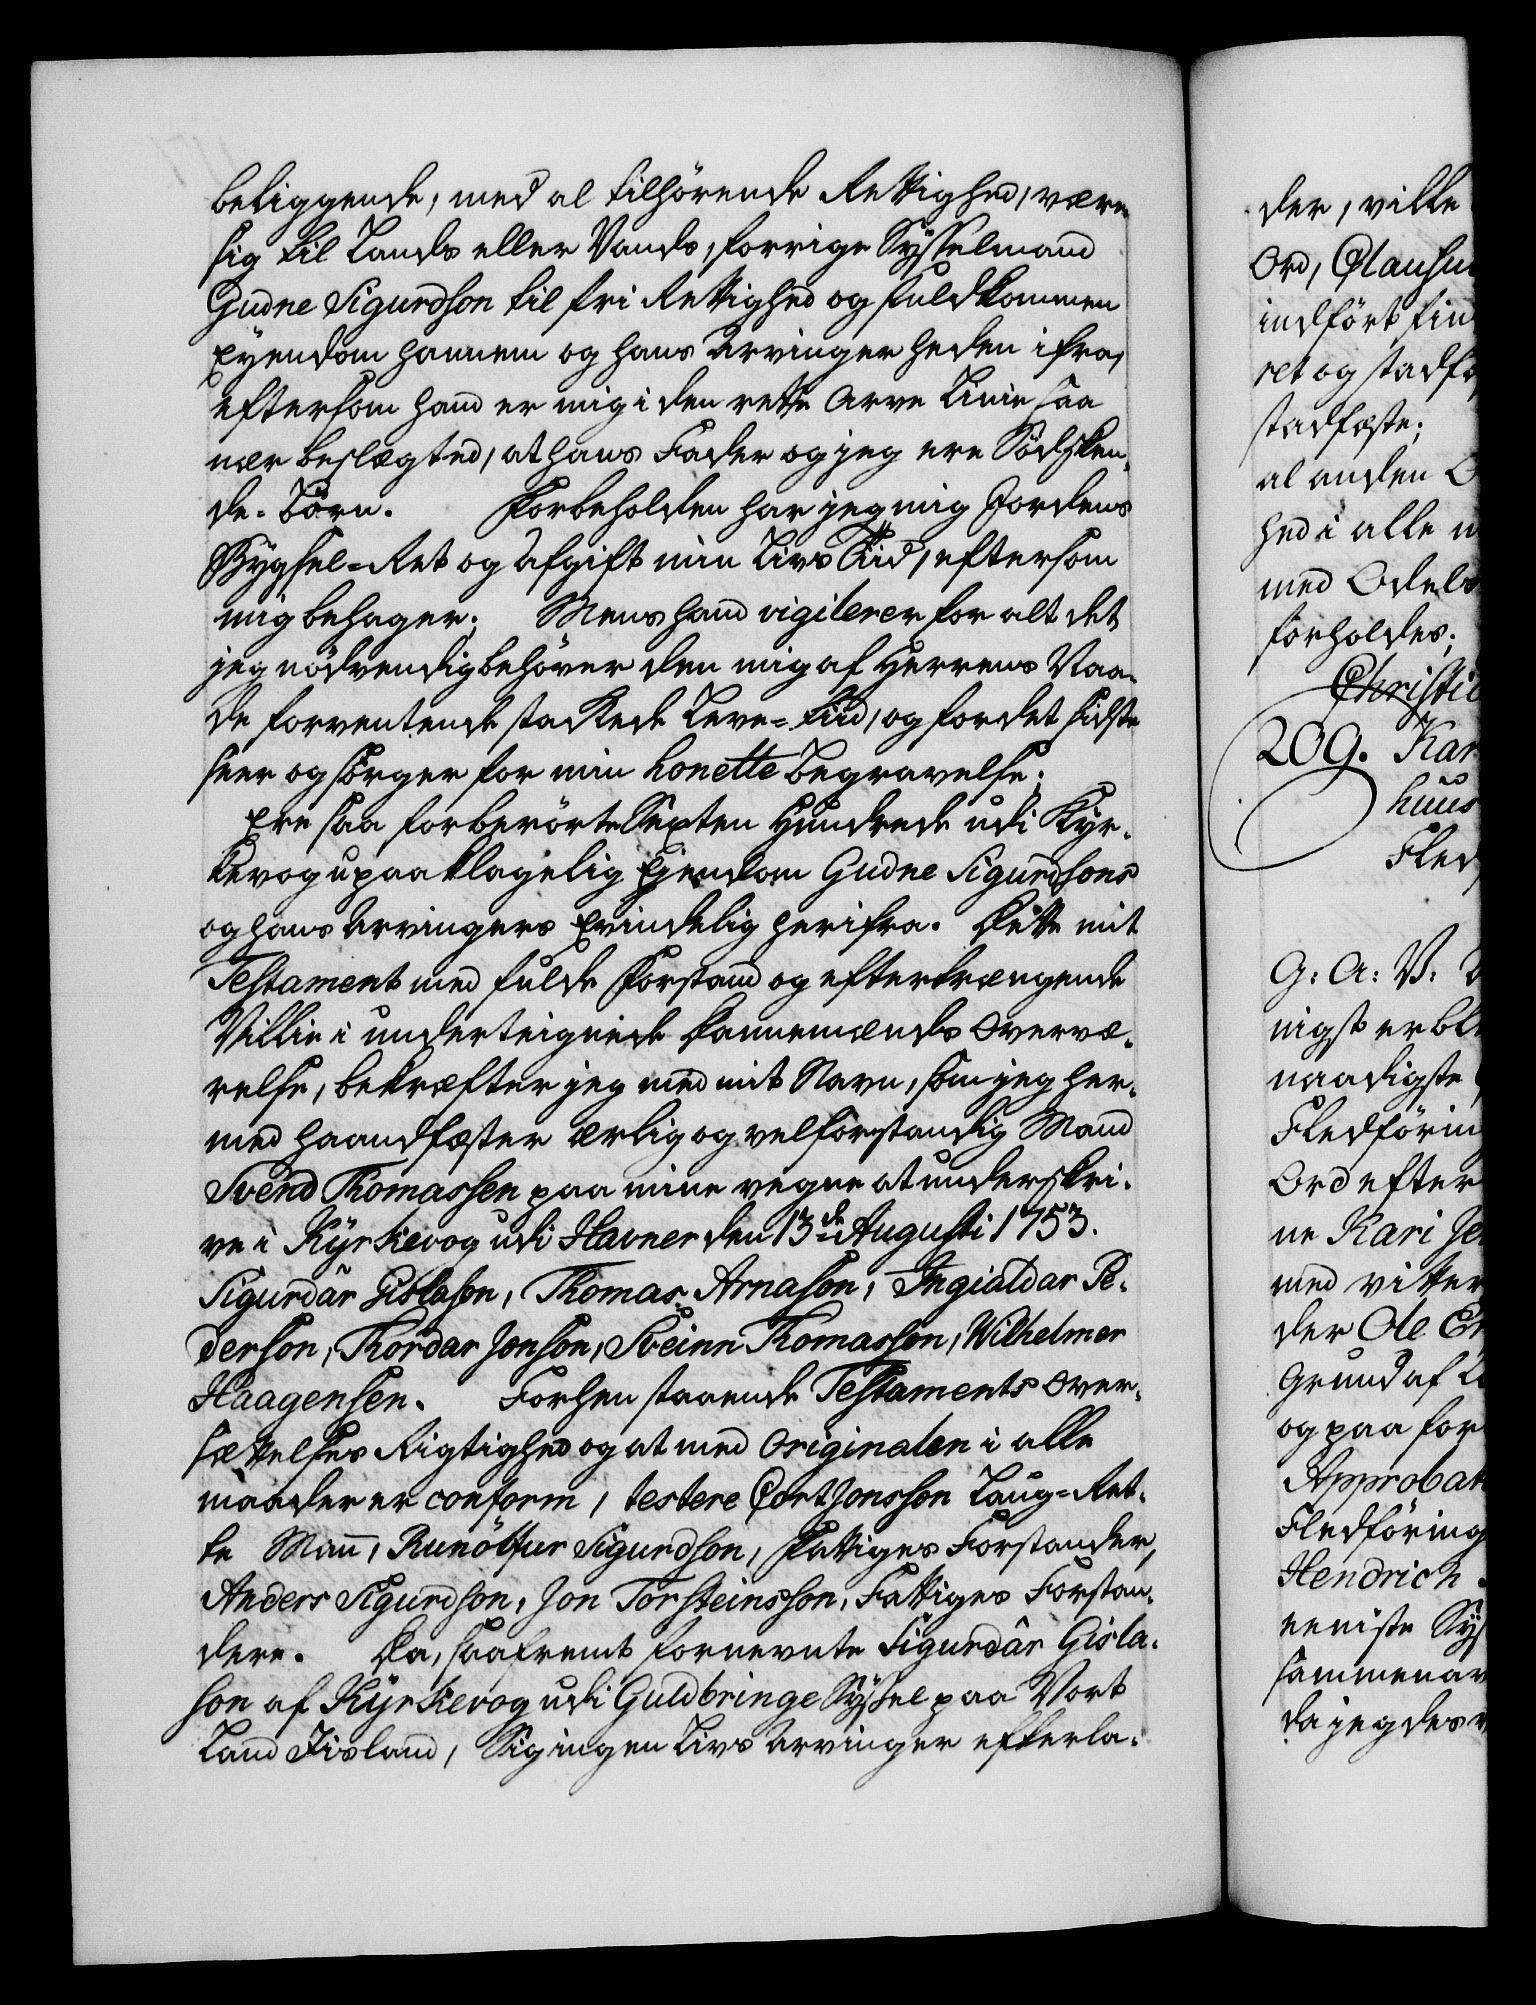 beliggende, med al tilhörende Rettighed, være
sig til Lands eller Vands, forrige Sysselmand
Gudne Sigurdson til fri Rettighed og fuldkommen
Eyendom hannem og hans Arvinger heden ifra,
eftersom hand er mig i den rette Arve Linie saa
nær beslægted, at hans Fader og jeg ere Södsken-
de-Börn. Forbeholden har jeg mig Jordens
Bygsel-Ret og Afgift min Livs Tiid, eftersom
mig behager; Mens hand vigilerer for alt det
jeg nödvendig behöver den mig af Herrens Naa-
de forventende stackede Leve-Tiid, og for det sidste
seer og sörger for min honette Begravelse;
Ere saa forberörte Sexten Hundrede udi Kyr-
kevog upaaklagelig Ejendom Gudne Sigurdsons
og hans Arvingers Evindelig herifra. Dette mit
Testament med fulde Forstand og eftertrængende
Villie i underteignede Dannemænds Overvæ-
relse, bekræfter jeg med mit Navn, som jeg her-
med haandfæster ærlig og velforstandig Mand
Svend Thomassen paa mine vegne at underskri-
ve i Kyrkevog udi Havner den 13de Augusti 1753.
Sigurdár Gislason, Thomas Arnason, Ingialdar Pe-
derson, Thordar Jonson, Sveinn Thomasson, Wilhelmer
Haagensen. Forhen staaende Testaments Over-
sættelses Rigtighed og at med Originalen i alle
maader er conform, testere Cort Jonsson Laug-Ret-
te Man̄, Runólfur Sigurdson, Fattiges Forstander,
Anders Sigurdson, Jon Torsteinsson, Fattiges Forstan-
dere. Da, saafremt fornevnte Sigurdár Gisla-
son af Kyrkevog udi Guldbringe Syssel paa Vort
Land Iisland, Sig ingen Livs Arvinger efterla-
der, ville
Ord,
indfört
ret og
stadfæste;
al anden
hed i alle
med Odels
forholdes;
209.
huus
G: A: V:
nigst
naadigste
Ord efter
ne Kari
med
der Ole
Grund af
og paa for
Fledföring
Hendrich
eeniste
da jeg